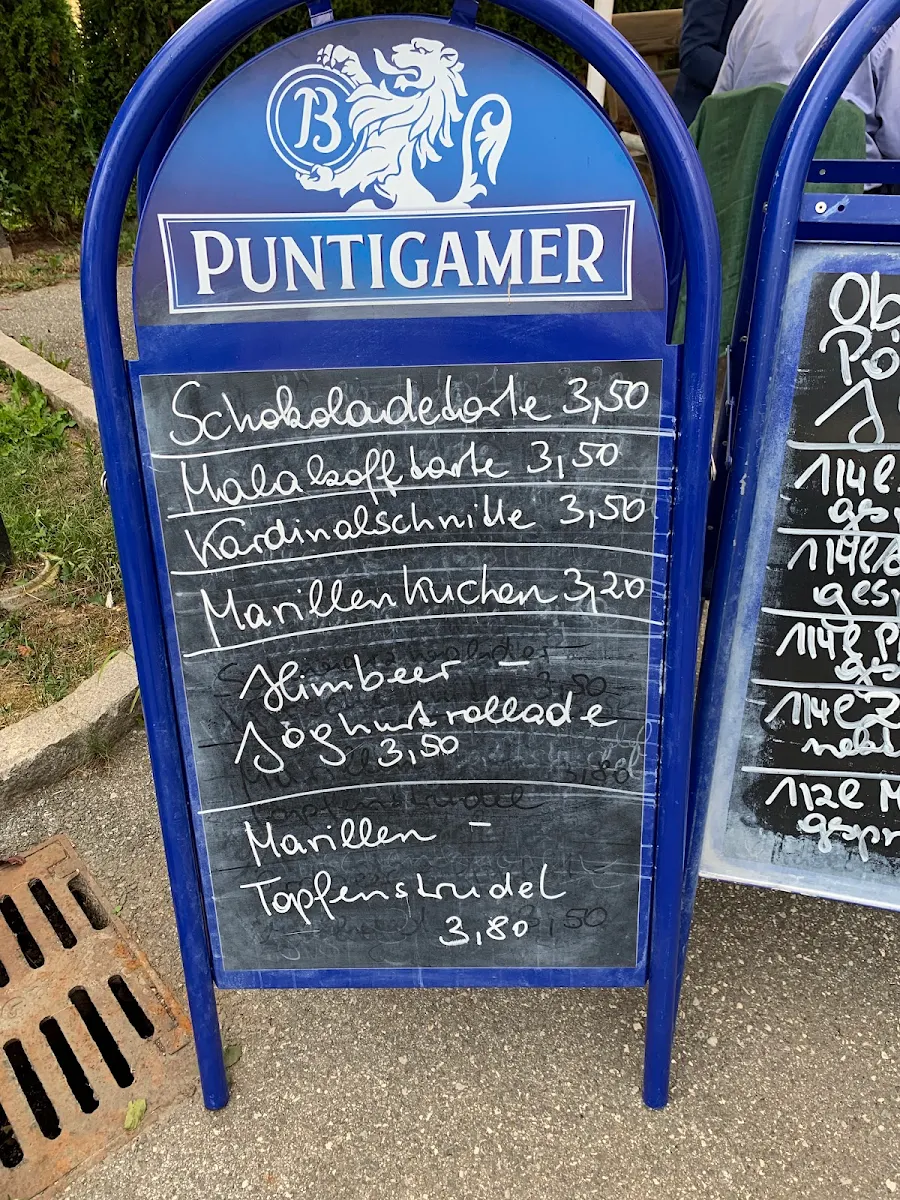 B
PUNTIGAMER
Schokoladetorte 3,50
Malakofftorte 3,50
Kardinalschnitte 3,50
Marillenkuchen 3,20
Himbeer -
Joghurtrollade
3,50
Marillen -
Topfenstrudel
3,80
Ob
1/4l
gesp
1/4l
gesp
1/4l
1/4l
1/2l M
gespr